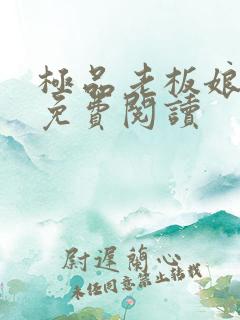 極品老板娘
免費閱讀
尉遲蘭心
未經同意禁止轉載